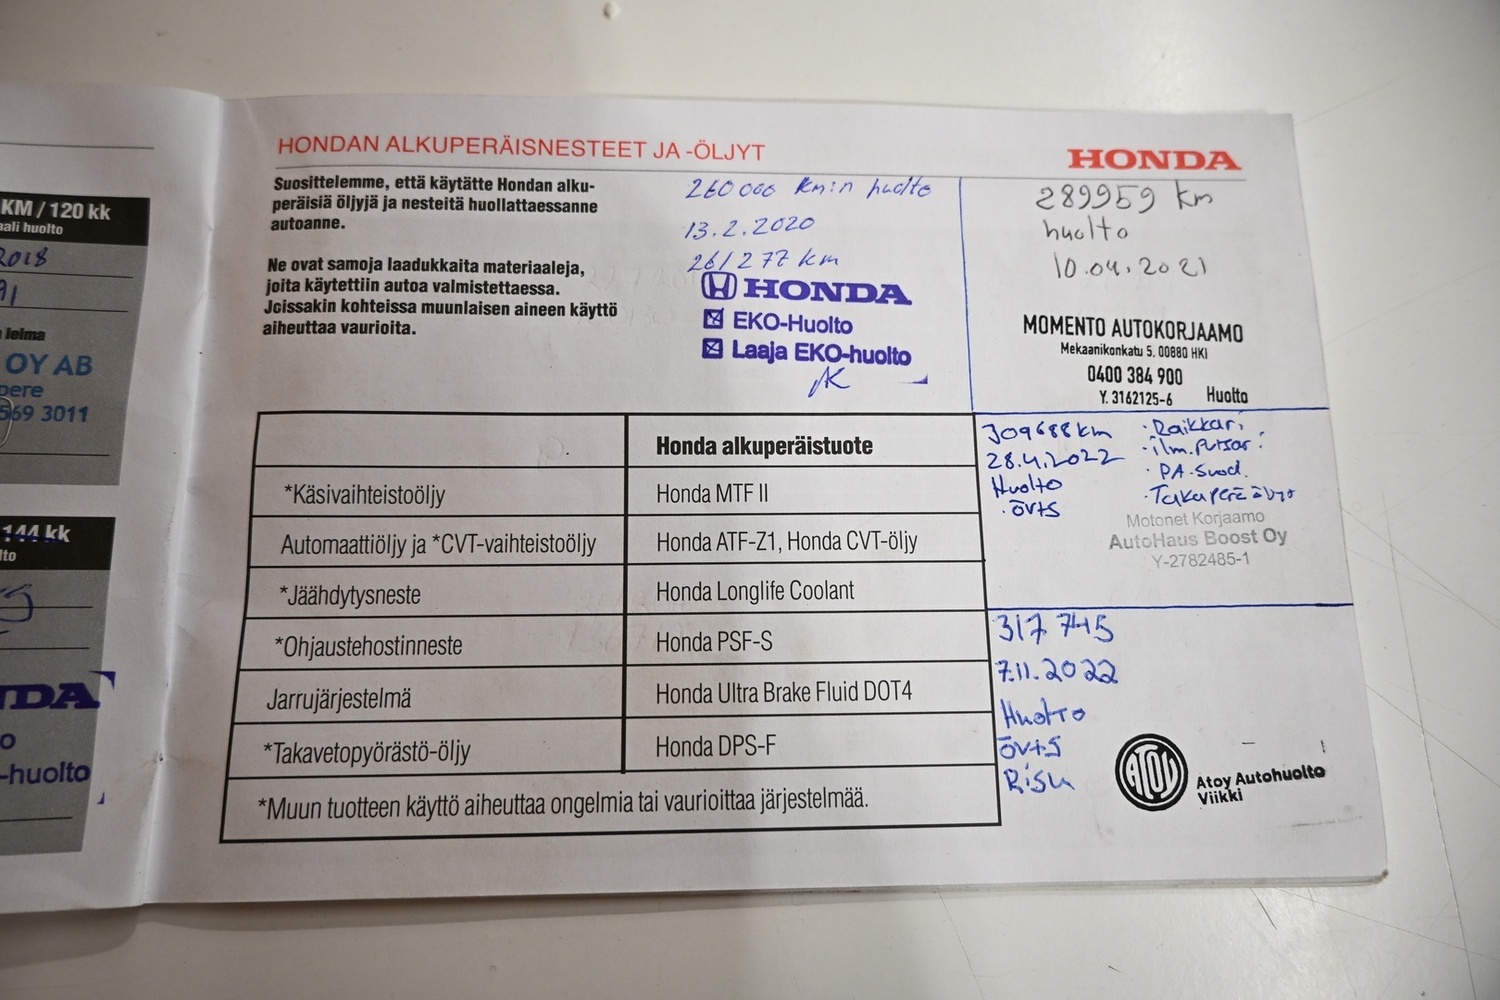 KM / 120 kk
aali huolto
2018
91
leima
OY AB
pere
569 3011
144 kk
lto
NDA
o
-huolto
HONDAN ALKUPERÄISNESTEET JA -ÖLJYT
HONDA
Suosittelemme, että käytätte Hondan alku-
peräisiä öljyjä ja nesteitä huollattaessanne
autoanne.
Ne ovat samoja laadukkaita materiaaleja,
joita käytettiin autoa valmistettaessa.
Joissakin kohteissa muunlaisen aineen käyttö
aiheuttaa vaurioita.
260 000 km:n huolto
13.2.2020
261277 km
HONDA
EKO-Huolto
Laaja EKO-huolto
289959 km
huolto
10.04.2021
MOMENTO AUTOKORJAAMO
Mekaanikonkatu 5, 00880 HKI
0400 384 900
Y. 3162125-6 Huolto
Honda alkuperäistuote
*Käsivaihteistoöljy Honda MTF II
Automaattiöljy ja *CVT-vaihteistoöljy Honda ATF-Z1, Honda CVT-öljy
*Jäähdytysneste Honda Longlife Coolant
*Ohjaustehostinneste Honda PSF-S
Jarrujärjestelmä Honda Ultra Brake Fluid DOT4
*Takavetopyörästö-öljy Honda DPS-F
*Muun tuotteen käyttö aiheuttaa ongelmia tai vaurioittaa järjestelmää.
309688km
28.4.2022
Huolto
· öv+s
· Raikkari
· ilm.putsar.
· PA-suod.
· Takaperä
Motonet Korjaamo
AutoHaus Boost Oy
Y-2782485-1
317 745
7.11.2022
Huolto
öv+s
ATOY
Atoy Autohuolto
Viikki